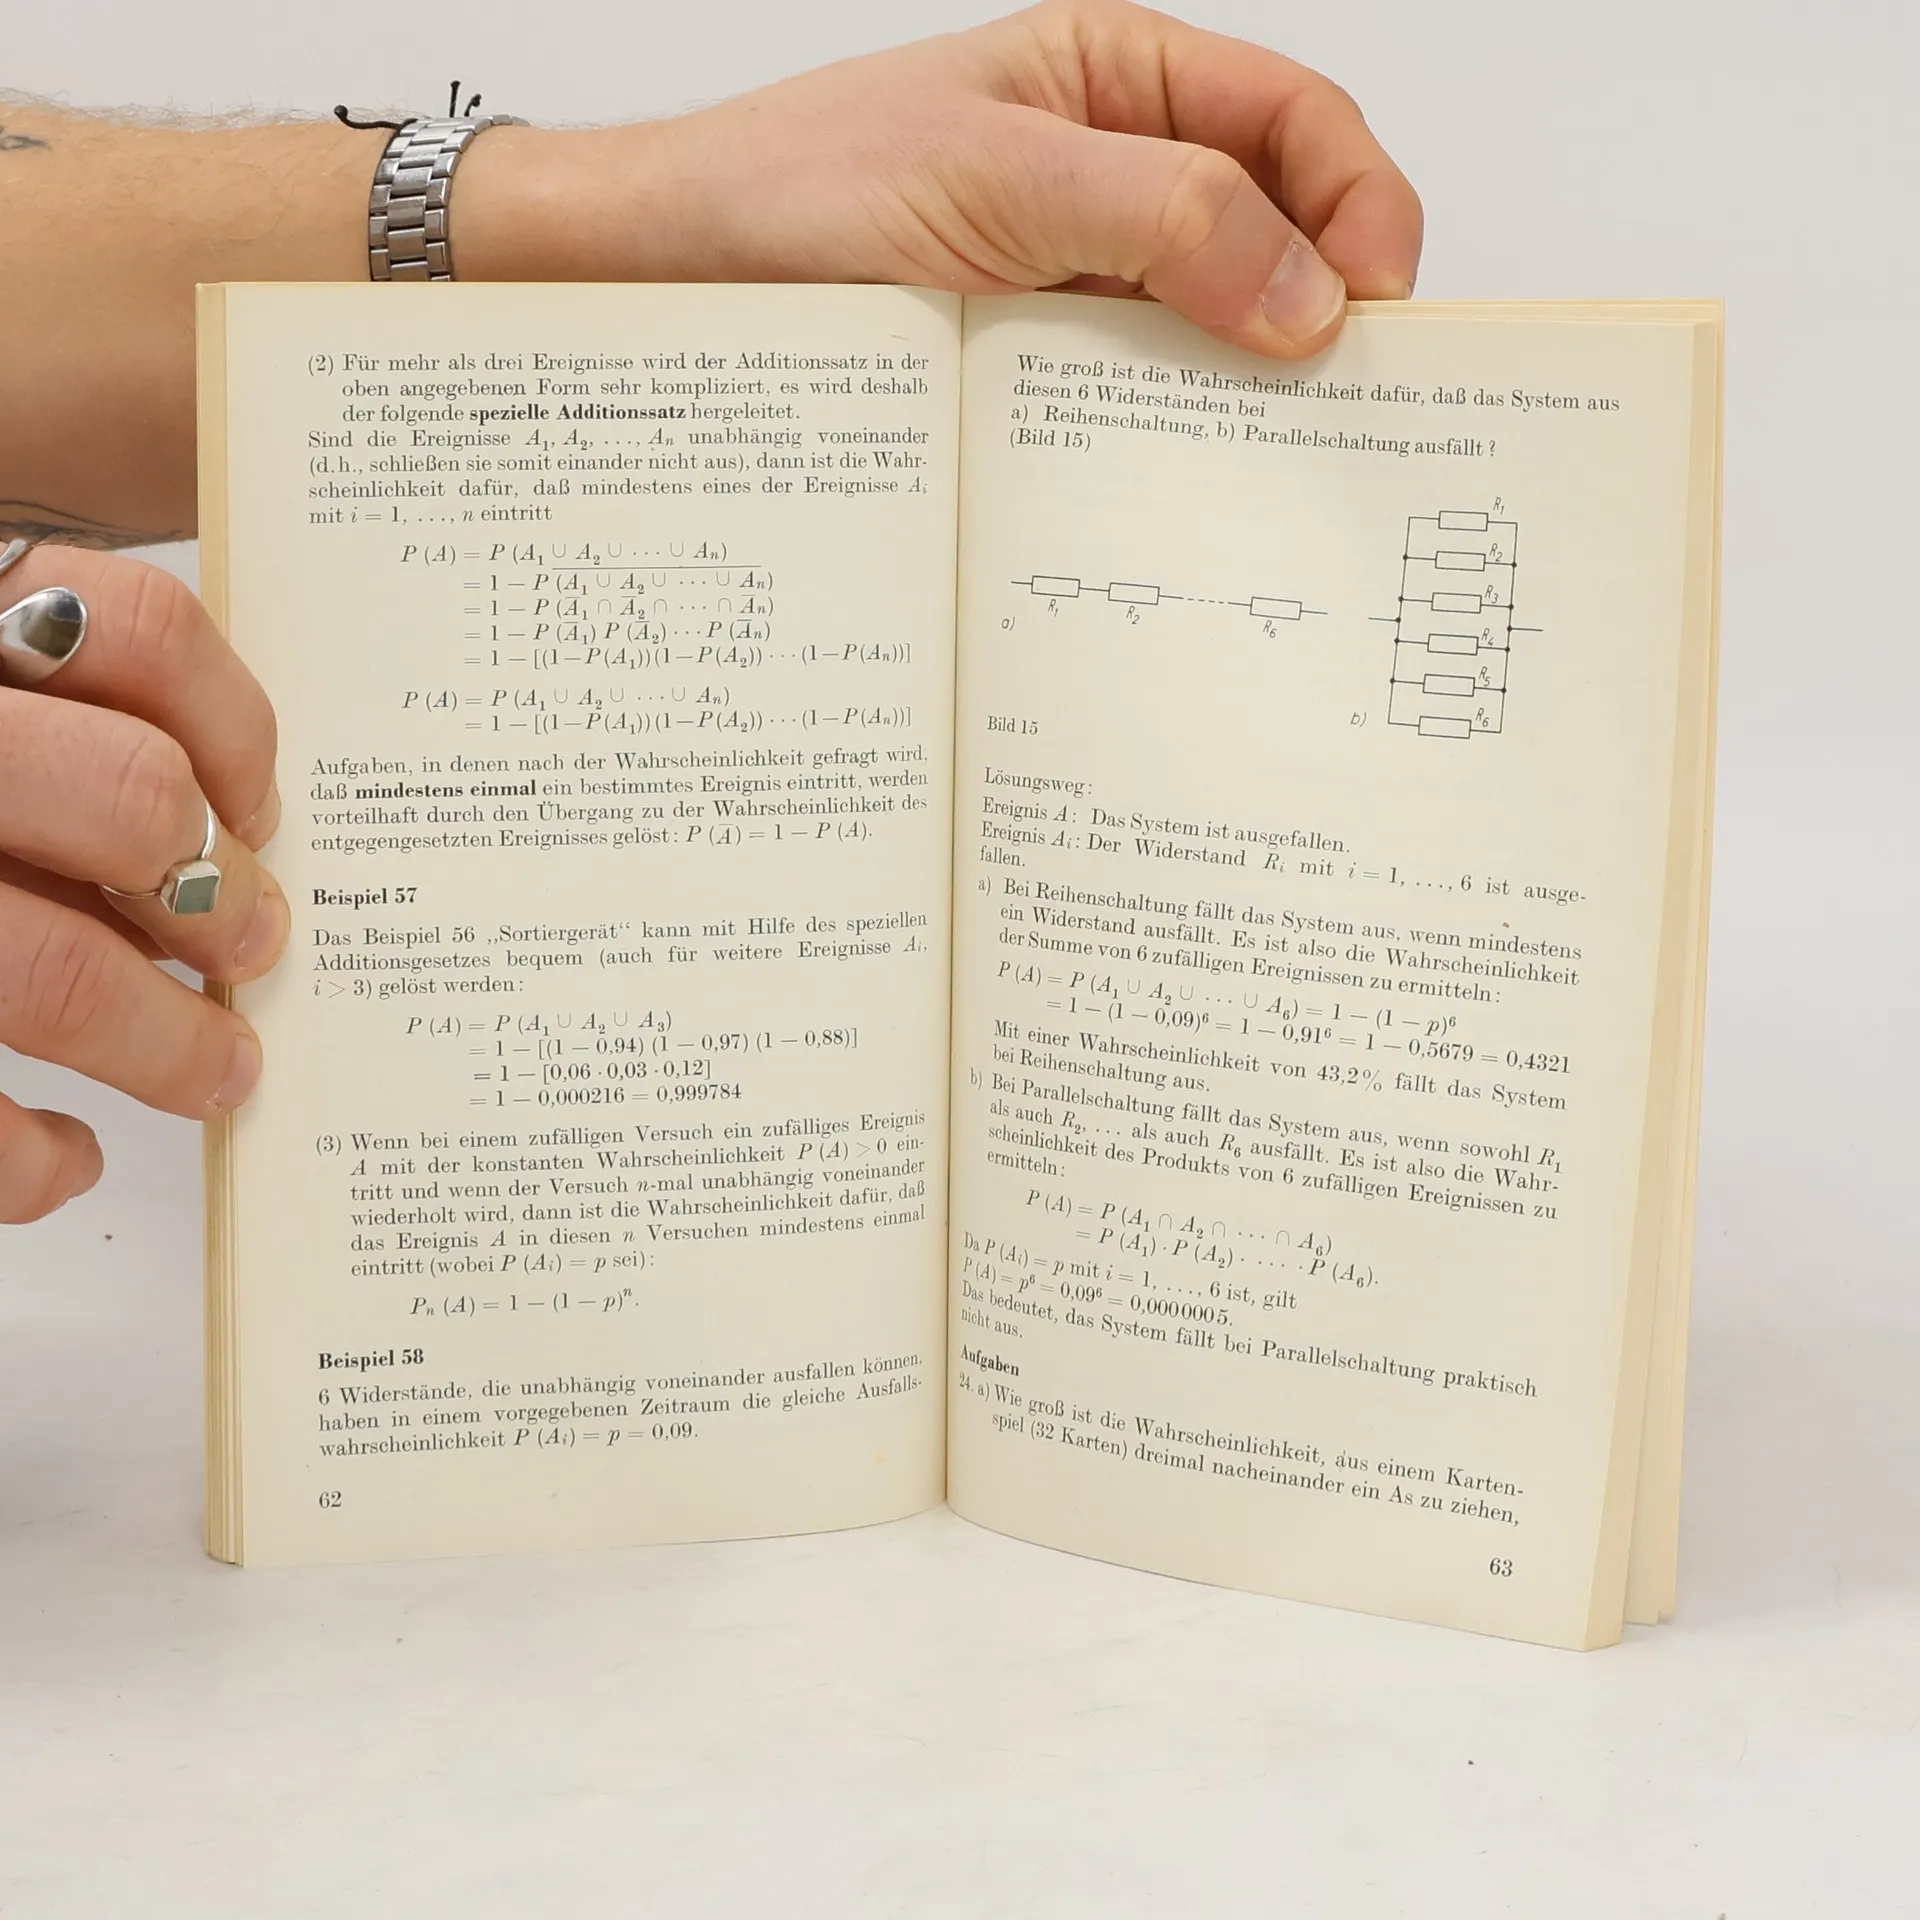 (2) Für mehr als drei Ereignisse wird der Additionssatz in der
oben angegebenen Form sehr kompliziert, es wird deshalb
der folgende spezielle Additionssatz hergeleitet.
Sind die Ereignisse A₁, A₂, ..., Aₙ unabhängig voneinander
(d.h., schließen sie somit einander nicht aus), dann ist die Wahr-
scheinlichkeit dafür, daß mindestens eines der Ereignisse Aᵢ
mit i = 1, ..., n eintritt
P (A) = P (A₁ ∪ A₂ ∪ ··· ∪ Aₙ)
= 1 − P (A̅₁̅ ̅∪̅ ̅A̅₂̅ ̅∪̅ ̅·̅·̅·̅ ̅∪̅ ̅A̅ₙ̅)
= 1 − P (A̅₁ ∩ A̅₂ ∩ ··· ∩ A̅ₙ)
= 1 − P (A̅₁) P (A̅₂) ··· P (A̅ₙ)
= 1 − [(1−P(A₁))(1−P(A₂)) ··· (1−P(Aₙ))]
P (A) = P (A₁ ∪ A₂ ∪ ... ∪ Aₙ)
= 1 − [(1−P(A₁))(1−P(A₂)) ··· (1−P(Aₙ))]
Aufgaben, in denen nach der Wahrscheinlichkeit gefragt wird,
daß mindestens einmal ein bestimmtes Ereignis eintritt, werden
vorteilhaft durch den Übergang zu der Wahrscheinlichkeit des
entgegengesetzten Ereignisses gelöst: P (A̅) = 1 − P (A).
Beispiel 57
Das Beispiel 56 „Sortiergerät“ kann mit Hilfe des speziellen
Additionsgesetzes bequem (auch für weitere Ereignisse Aᵢ,
i > 3) gelöst werden:
P (A) = P (A₁ ∪ A₂ ∪ A₃)
= 1 − [(1 − 0,94) (1 − 0,97) (1 − 0,88)]
= 1 − [0,06 · 0,03 · 0,12]
= 1 − 0,000216 = 0,999784
(3) Wenn bei einem zufälligen Versuch ein zufälliges Ereignis
A mit der konstanten Wahrscheinlichkeit P (A) > 0 ein-
tritt und wenn der Versuch n-mal unabhängig voneinander
wiederholt wird, dann ist die Wahrscheinlichkeit dafür, daß
das Ereignis A in diesen n Versuchen mindestens einmal
eintritt (wobei P (Aᵢ) = p sei):
Pₙ (A) = 1 − (1 − p)ⁿ.
Beispiel 58
6 Widerstände, die unabhängig voneinander ausfallen können,
haben in einem vorgegebenen Zeitraum die gleiche Ausfalls-
wahrscheinlichkeit P (Aᵢ) = p = 0,09.
62
Wie groß ist die Wahrscheinlichkeit dafür, daß das System aus
diesen 6 Widerständen bei
a) Reihenschaltung, b) Parallelschaltung ausfällt ?
(Bild 15)
a) R₁ R₂ R₆
b) R₁
R₂
R₃
R₄
R₅
R₆
Bild 15
Lösungsweg:
Ereignis A: Das System ist ausgefallen.
Ereignis Aᵢ: Der Widerstand Rᵢ mit i = 1, ..., 6 ist ausge-
fallen.
a) Bei Reihenschaltung fällt das System aus, wenn mindestens
ein Widerstand ausfällt. Es ist also die Wahrscheinlichkeit
der Summe von 6 zufälligen Ereignissen zu ermitteln:
P (A) = P (A₁ ∪ A₂ ∪ ... ∪ A₆) = 1 − (1 − p)⁶
= 1 − (1 − 0,09)⁶ = 1 − 0,91⁶ = 1 − 0,5679 = 0,4321
Mit einer Wahrscheinlichkeit von 43,2% fällt das System
bei Reihenschaltung aus.
b) Bei Parallelschaltung fällt das System aus, wenn sowohl R₁
als auch R₂, ... als auch R₆ ausfällt. Es ist also die Wahr-
scheinlichkeit des Produkts von 6 zufälligen Ereignissen zu
ermitteln:
P (A) = P (A₁ ∩ A₂ ∩ ··· ∩ A₆)
= P (A₁) · P (A₂) · ... · P (A₆).
Da P (Aᵢ) = p mit i = 1, ..., 6 ist, gilt
P (A) = p⁶ = 0,09⁶ = 0,0000005.
Das bedeutet, das System fällt bei Parallelschaltung praktisch
nicht aus.
Aufgaben
24. a) Wie groß ist die Wahrscheinlichkeit, aus einem Karten-
spiel (32 Karten) dreimal nacheinander ein As zu ziehen,
63